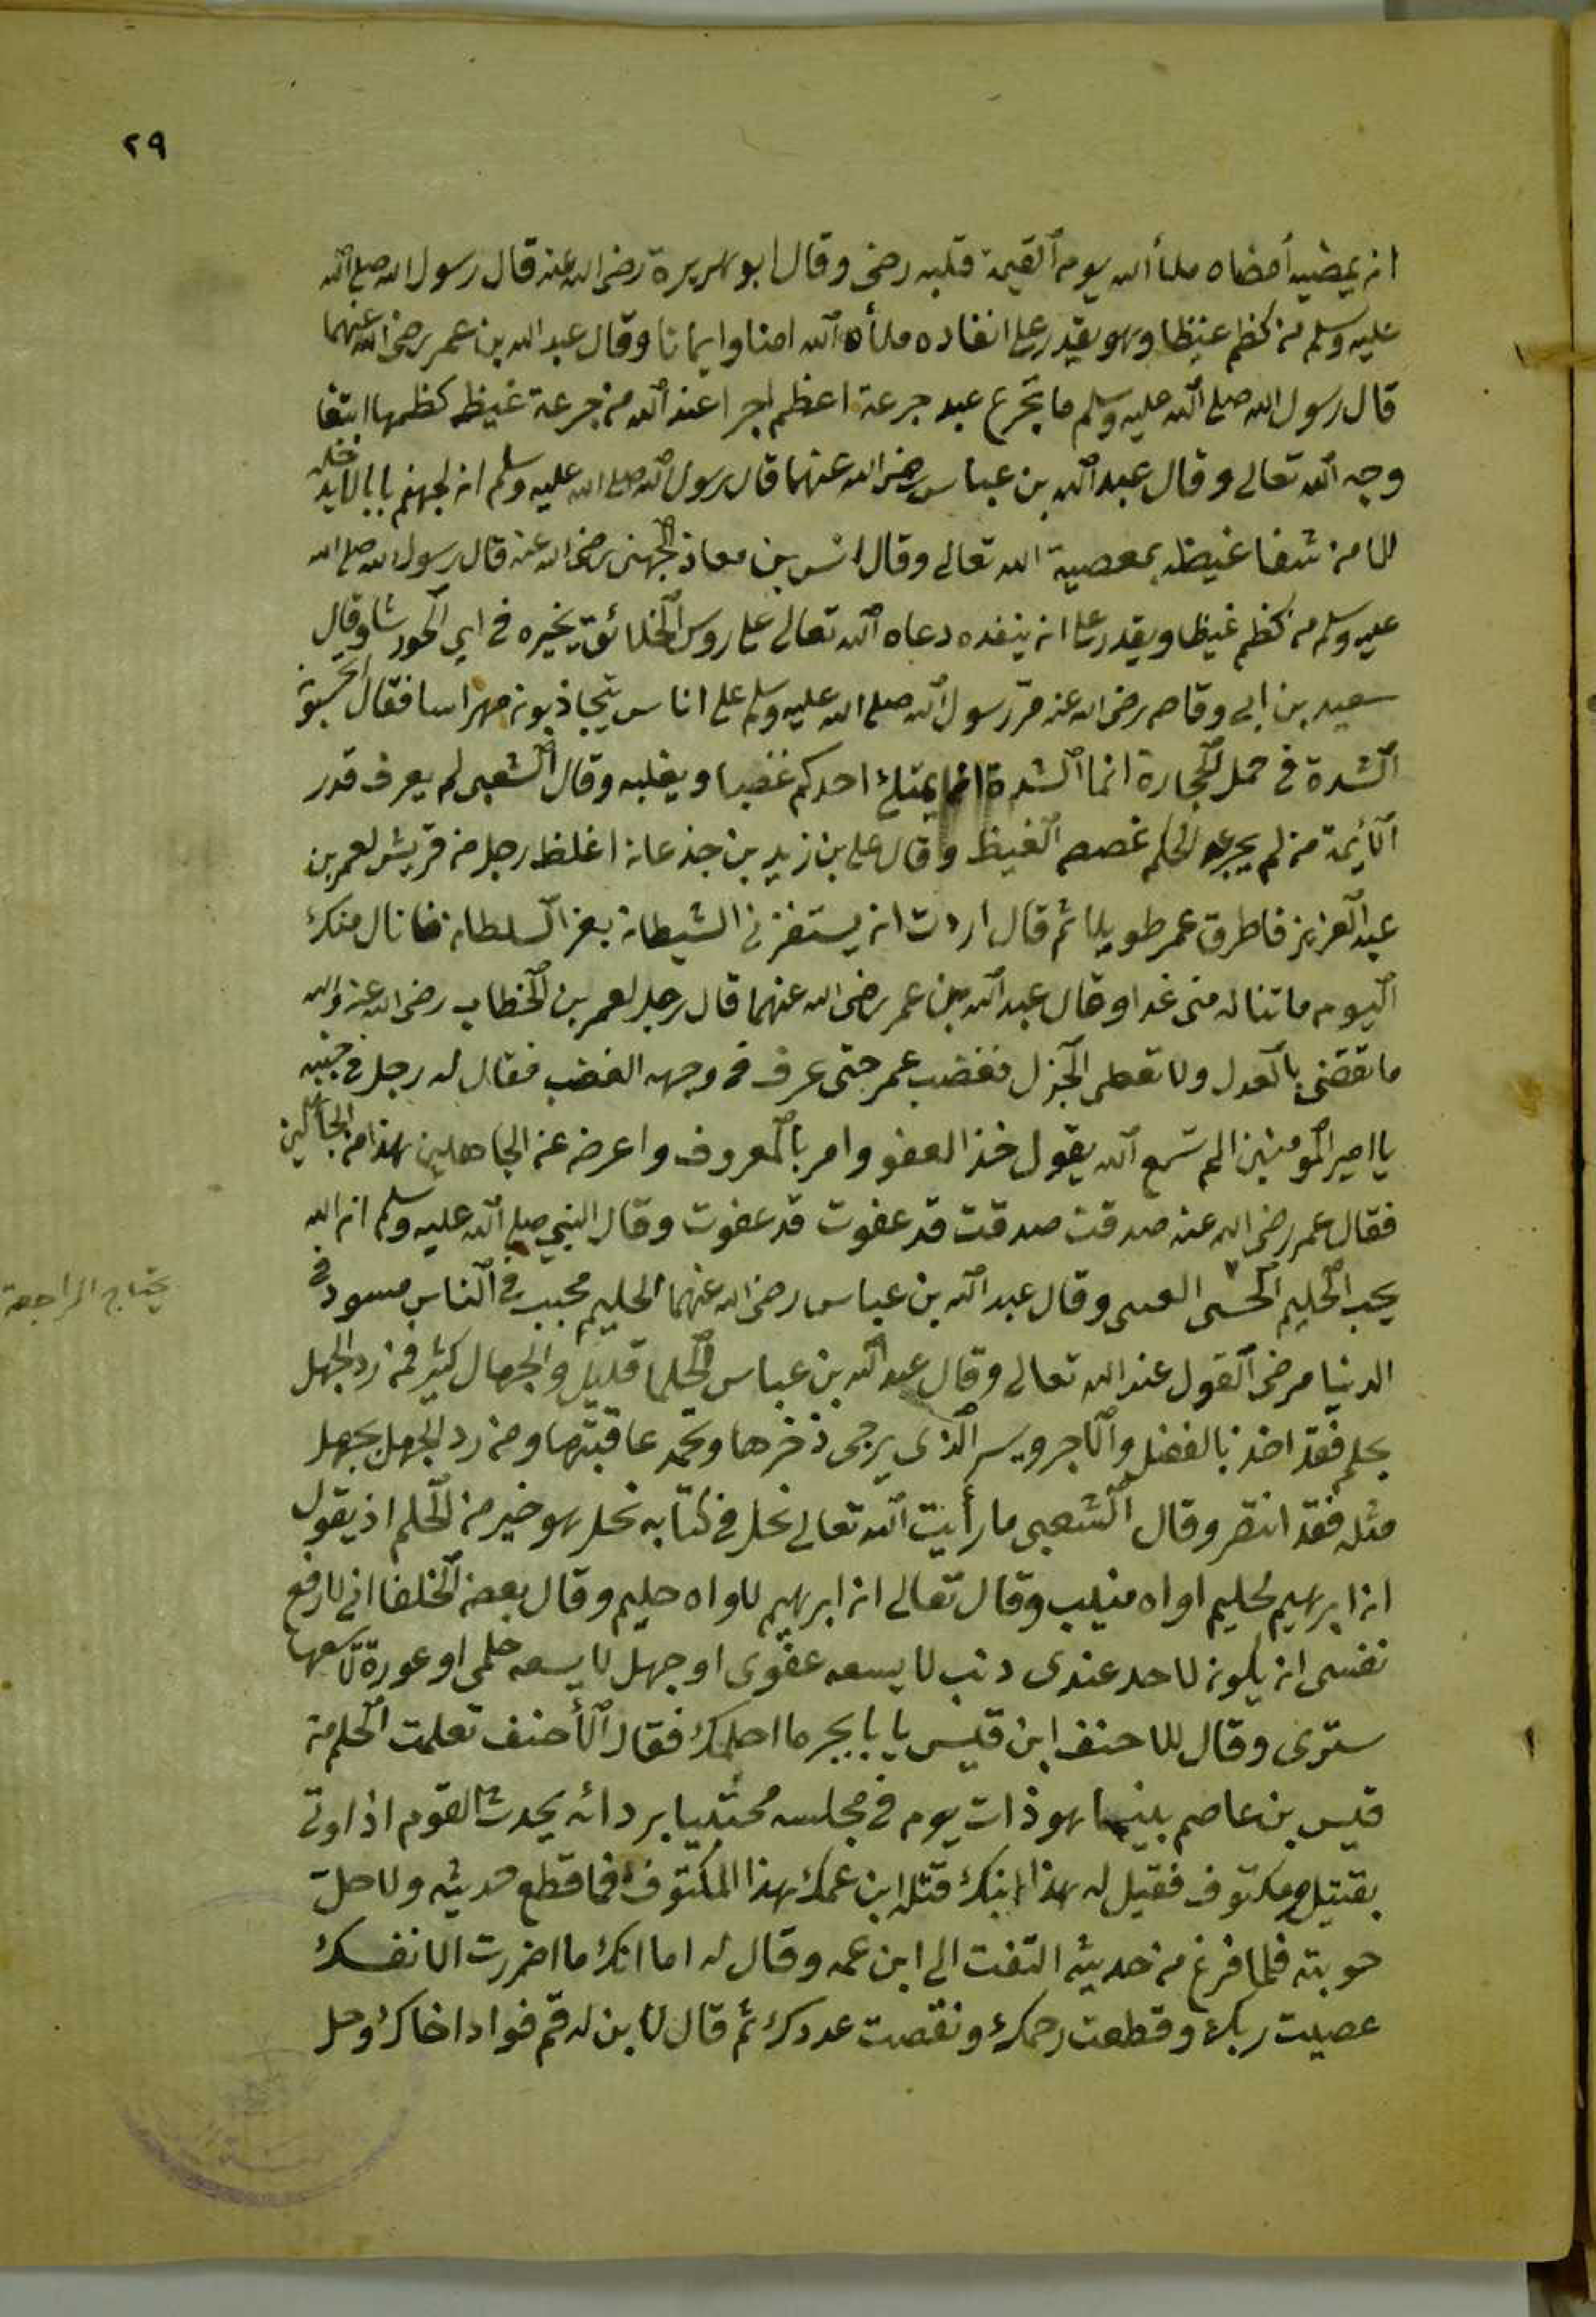 ٢٩
ان يمضيه أمضاه ملأ الله يوم القيمة قلبه رضى وقال ابو هريرة رضى الله عنه قال رسول الله صلى الله
عليه وسلم من كظم غيظا وهو يقدر على انفاده ملأه الله امنا وايمانا وقال عبد الله بن عمر رضى الله عنهما
قال رسول الله صلى الله عليه وسلم ما تجرع عبد جرعة اعظم اجرا عند الله من جرعة غيظ كظمها ابتغا
وجه الله تعالى وقال عبد الله بن عباس رضى الله عنهما قال رسول الله صلى الله عليه وسلم ان لجهنم بابا لا يدخله
الا من شفا غيظه بمعصية الله تعالى وقال انس بن معاذ الجهنى رضى الله عنه قال رسول الله صلى الله
عليه وسلم من كظم غيظا ويقدر على ان ينفده دعاه الله تعالى على روس الخلائق يخيره فى اى الحور شا وقال
سعيد بن ابى وقاص رضى الله عنه مرّ رسول الله صلى الله عليه وسلم على اناس يتجاذبون مهراسا فقال اتحسبون
الشدة فى حمل الحجارة انما الشدة ان يمتلئ احدكم غضبا ويغلبه وقال الشعبى لم يعرف قدر
الأيمة من لم يجرعه الحلم غصص الغيظ وقال على بن زيد بن جذعان اغلظ رجل من قريش لعمر بن
عبد العزيز فاطرق عمر طويلا ثم قال اردت ان يستفزنى الشيطان بعز السلطان فانال منك
اليوم ما تناله منى غدا وقال عبد الله بن عمر رضى الله عنهما قال رجل لعمر بن الخطاب رضى الله عنه والله
ما تقضى بالعدل ولا تعطى الجزل فغضب عمر حتى عرف فى وجهه الغضب فقال له رجل فى جنبه
يا امير المومنين الم تسمع الله يقول خذ العفو وامر بالمعروف واعرض عن الجاهلين هذا من الجاهلين
فقال عمر رضى الله عنه صدقت صدقت قد عفوت قد عفوت وقال النبى صلى الله عليه وسلم ان الله
يحب الحليم الحسى العسى وقال عبد الله بن عباس رضى الله عنهما الحليم محبب فى الناس مسود فى
يحتاج المراجعة
الدنيا مرضى القول عند الله تعالى وقال عبد الله بن عباس الحلما قليل والجهال كثير فمن رد الجهل
بحلم فقد اخذ بالفضل والاجر ويسر الذى يرجى ذخرها وتحمد عاقبتها ومن رد الجهل بجهل
مثله فقد انتصر وقال الشعبى ما رأيت الله تعالى نحل فى كتابه نحل هو خير من الحلم اذ يقول
ان ابرهيم لحليم اواه منيب وقال تعالى ان ابرهيم لاواه حليم وقال بعض الخلفا انى لارفع
نفسى ان يكون لاحد عندى دنب لا يسعه عفوى او جهل لا يسعه حلمى او عورة لا يسعها
سترى وقال للاحنف ابن قيس يا با بحر ما احلمك فقال الأحنف تعلمت الحلم من
قيس بن عاصم بينما هو ذات يوم فى مجلسه محتبيا بردائه يحدث القوم اذ اوتى
بقتيل ومكتوف فقيل له هذا ابنك قتله ابن عمك هذا المكتوف فما قطع حديثه ولا حل
حوبته فلما فرغ من حديثه التفت الى ابن عمه وقال له اما انك ما اضررت الا نفسك
عصيت ربك وقطعت رحمك ونقصت عددك ثم قال لابن له قم فواد اخاك وحل